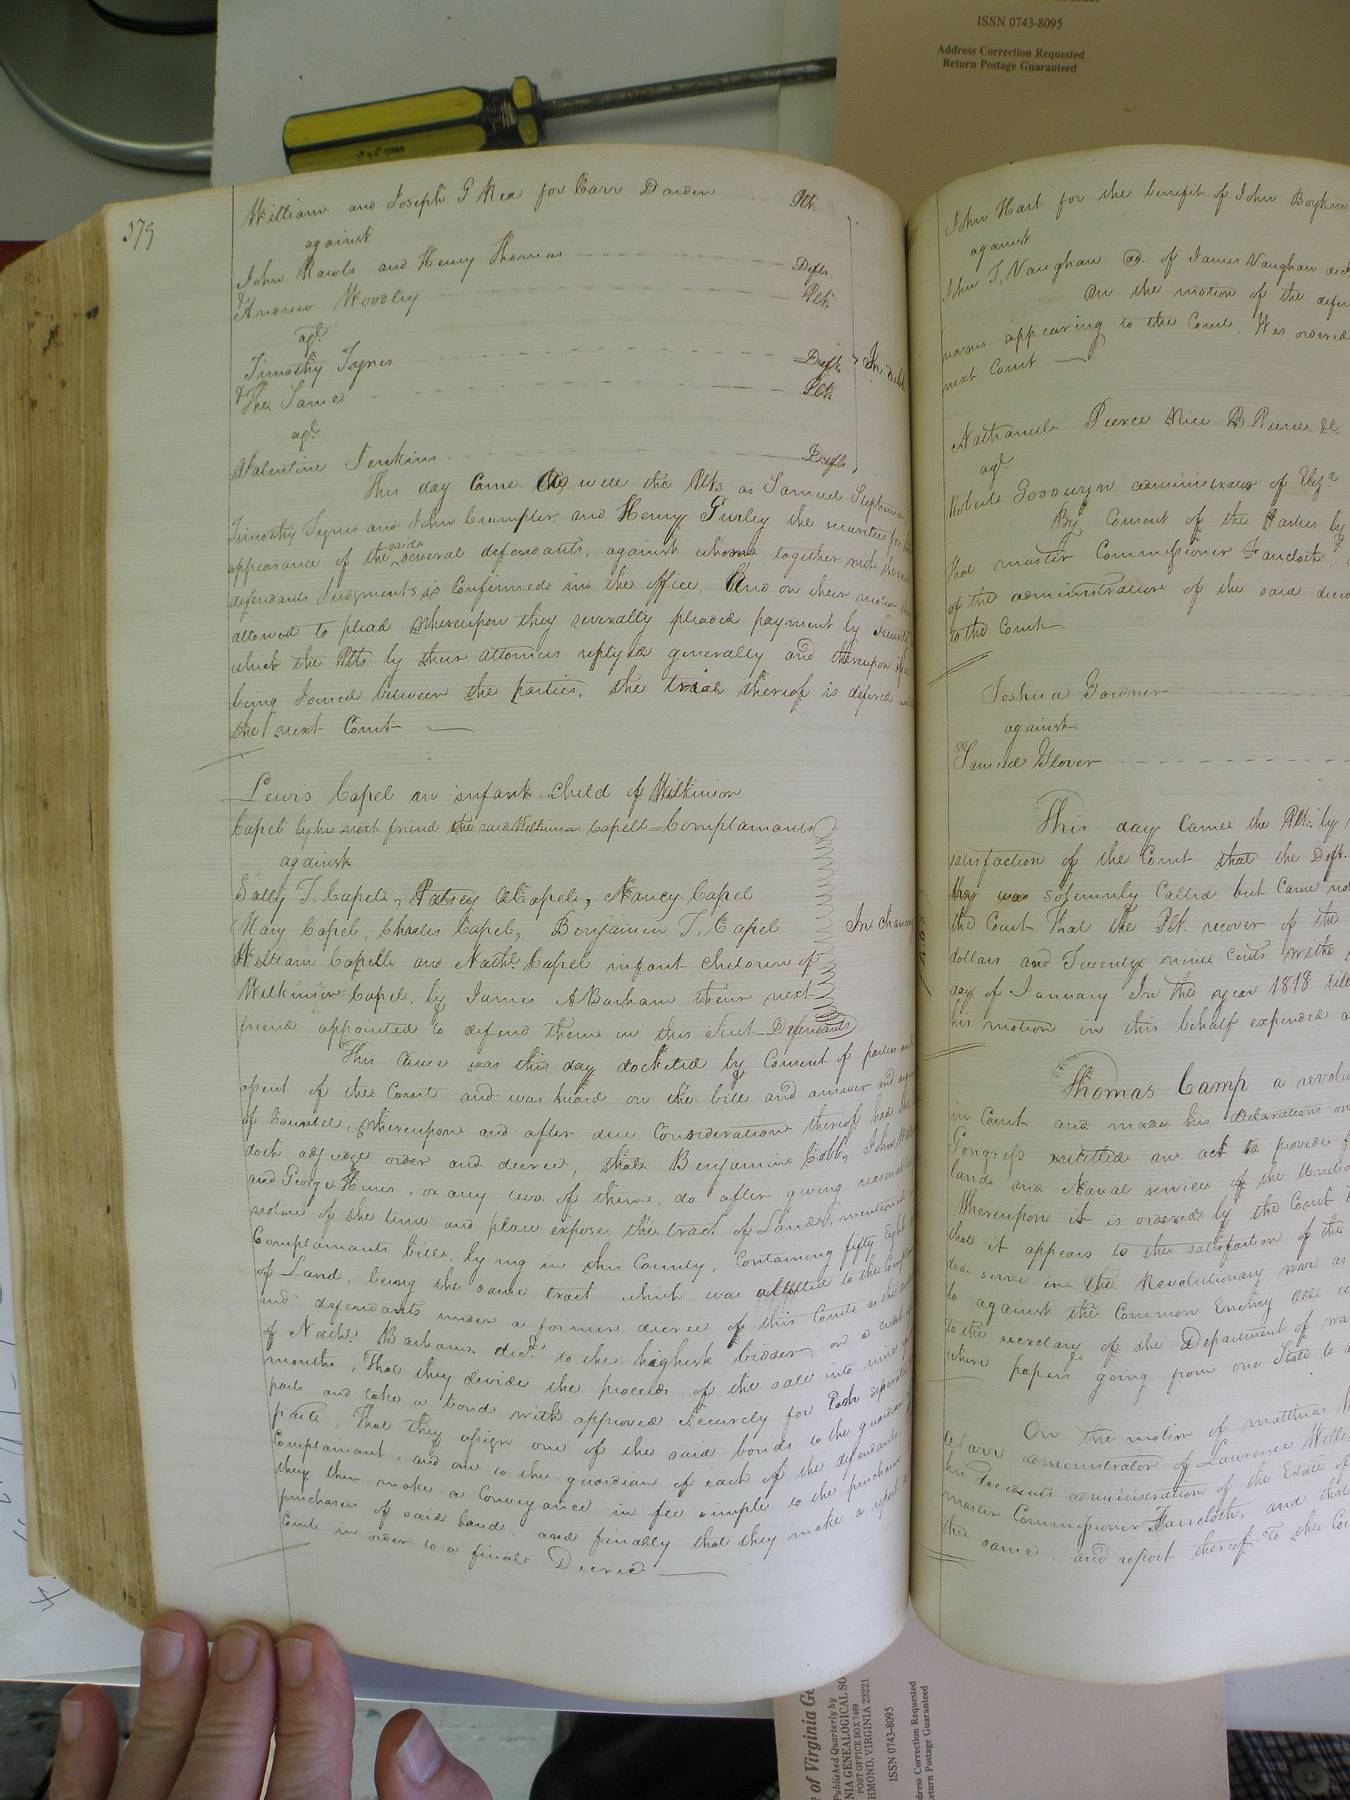 ISSN 0743-8095
Address Correction Requested
Return Postage Guaranteed
379
William and Joseph G Rea for Carr Darden Plt.
against
John Rawls and Henry Thomas Defts.
& Andrew Woodley Plt.
agt.
Timothy Tynes Deft.
& The Same Plt.
agt.
Valentine Jenkins Deft.
In debt
This day Came as well the Plts. as Samuel Stephenson
Timothy Tynes and John Crumpler and Henry Gurley the securities for the
appearance of the said several defendants, against whom together with the said
defendants Judgments is Confirmed in the office, And on their motion
allowed to plead Whereupon they severally pleaded payment by
which the Plts. by their attornies replyed generally and thereupon
being Joined between the parties, the trial thereof is defered until
the next Court
Lewis Capel an infant child of Wilkinson
Capel by his next friend the said Wilkinson Capell = Complainant
against
Sally T. Capel, Patsey A Capel, Nancy Capel
Mary Capel, Charles Capel, Benjamin T. Capel
William Capell and Nathl. Capel infant children of
Wilkinson Capel, by James A Barham their next
friend appointed to defend them in this Suit - Defendants
In chancery
This Cause was this day docketed by Consent of parties and
of the Court and was heard on the bill and answer and
of Counsel, Whereupon and after due Consideration thereof had
doth adjudge order and decree, that Benjamin Cobb, John
and George Hines, or any two of them, do after giving reasonable
notice of the time and place expose the tract of Land, mentioned
Complainants bill, lying in this County, Containing fifty Eight
of Land, being the same tract which was allotted to the
and defendants under a former decree of this Court
of Nathl. Barham decd. to the highest bidder, on a credit
months, That they divide the proceeds of the sale into nine
parts and take a bond with approved security for Each
part, That they assign one of the said bonds to the guardian
Complainant, and one to the guardian of each of the defendants
they then make a Conveyance in fee simple to the purchaser
purchasers of said Land. and finally that they make a report
Court in order to a final Decree
John Hart for the benefit of John Boykin
against
John T. Vaughan ad. of James Vaughan
On the motion of the
appearing to the Court, It is ordered
next Court
Nathaniel Pierce Rice B Pierce
agt.
Goodwyn administrator of Eliza
By Consent of the Parties by
that master Commissioner Faircloth
of the administration of the said
to the Court
Joshua Gardner
against
Samuel Glover
This day Came the Plt. by
satisfaction of the Court that the Deft.
was solemnly Called but Came not
the Court That the Plt. recover of the
dollars and Twenty nine Cents with
day of January In the year 1818 till
his motion in this behalf expended
Thomas Camp a
in Court and made his declaration on
Congress entitled an act to provide
land and Naval service of the
Whereupon it is ordered by the Court
that it appears to the satisfaction of the
did serve in the Revolutionary war
to against the Common Enemy
to the secretary of the Department of war
where papers going from one State to
On the motion of Matthias
administrator of Lawrence
his decedents administration of the Estate of
master Commissioner Faircloth, and that
the same, and report thereof To the
of Virginia
Published Quarterly by
GENEALOGICAL
POST OFFICE BOX 7469
VIRGINIA 23221
ISSN 0743-8095
Address Correction Requested
Return Postage Guaranteed